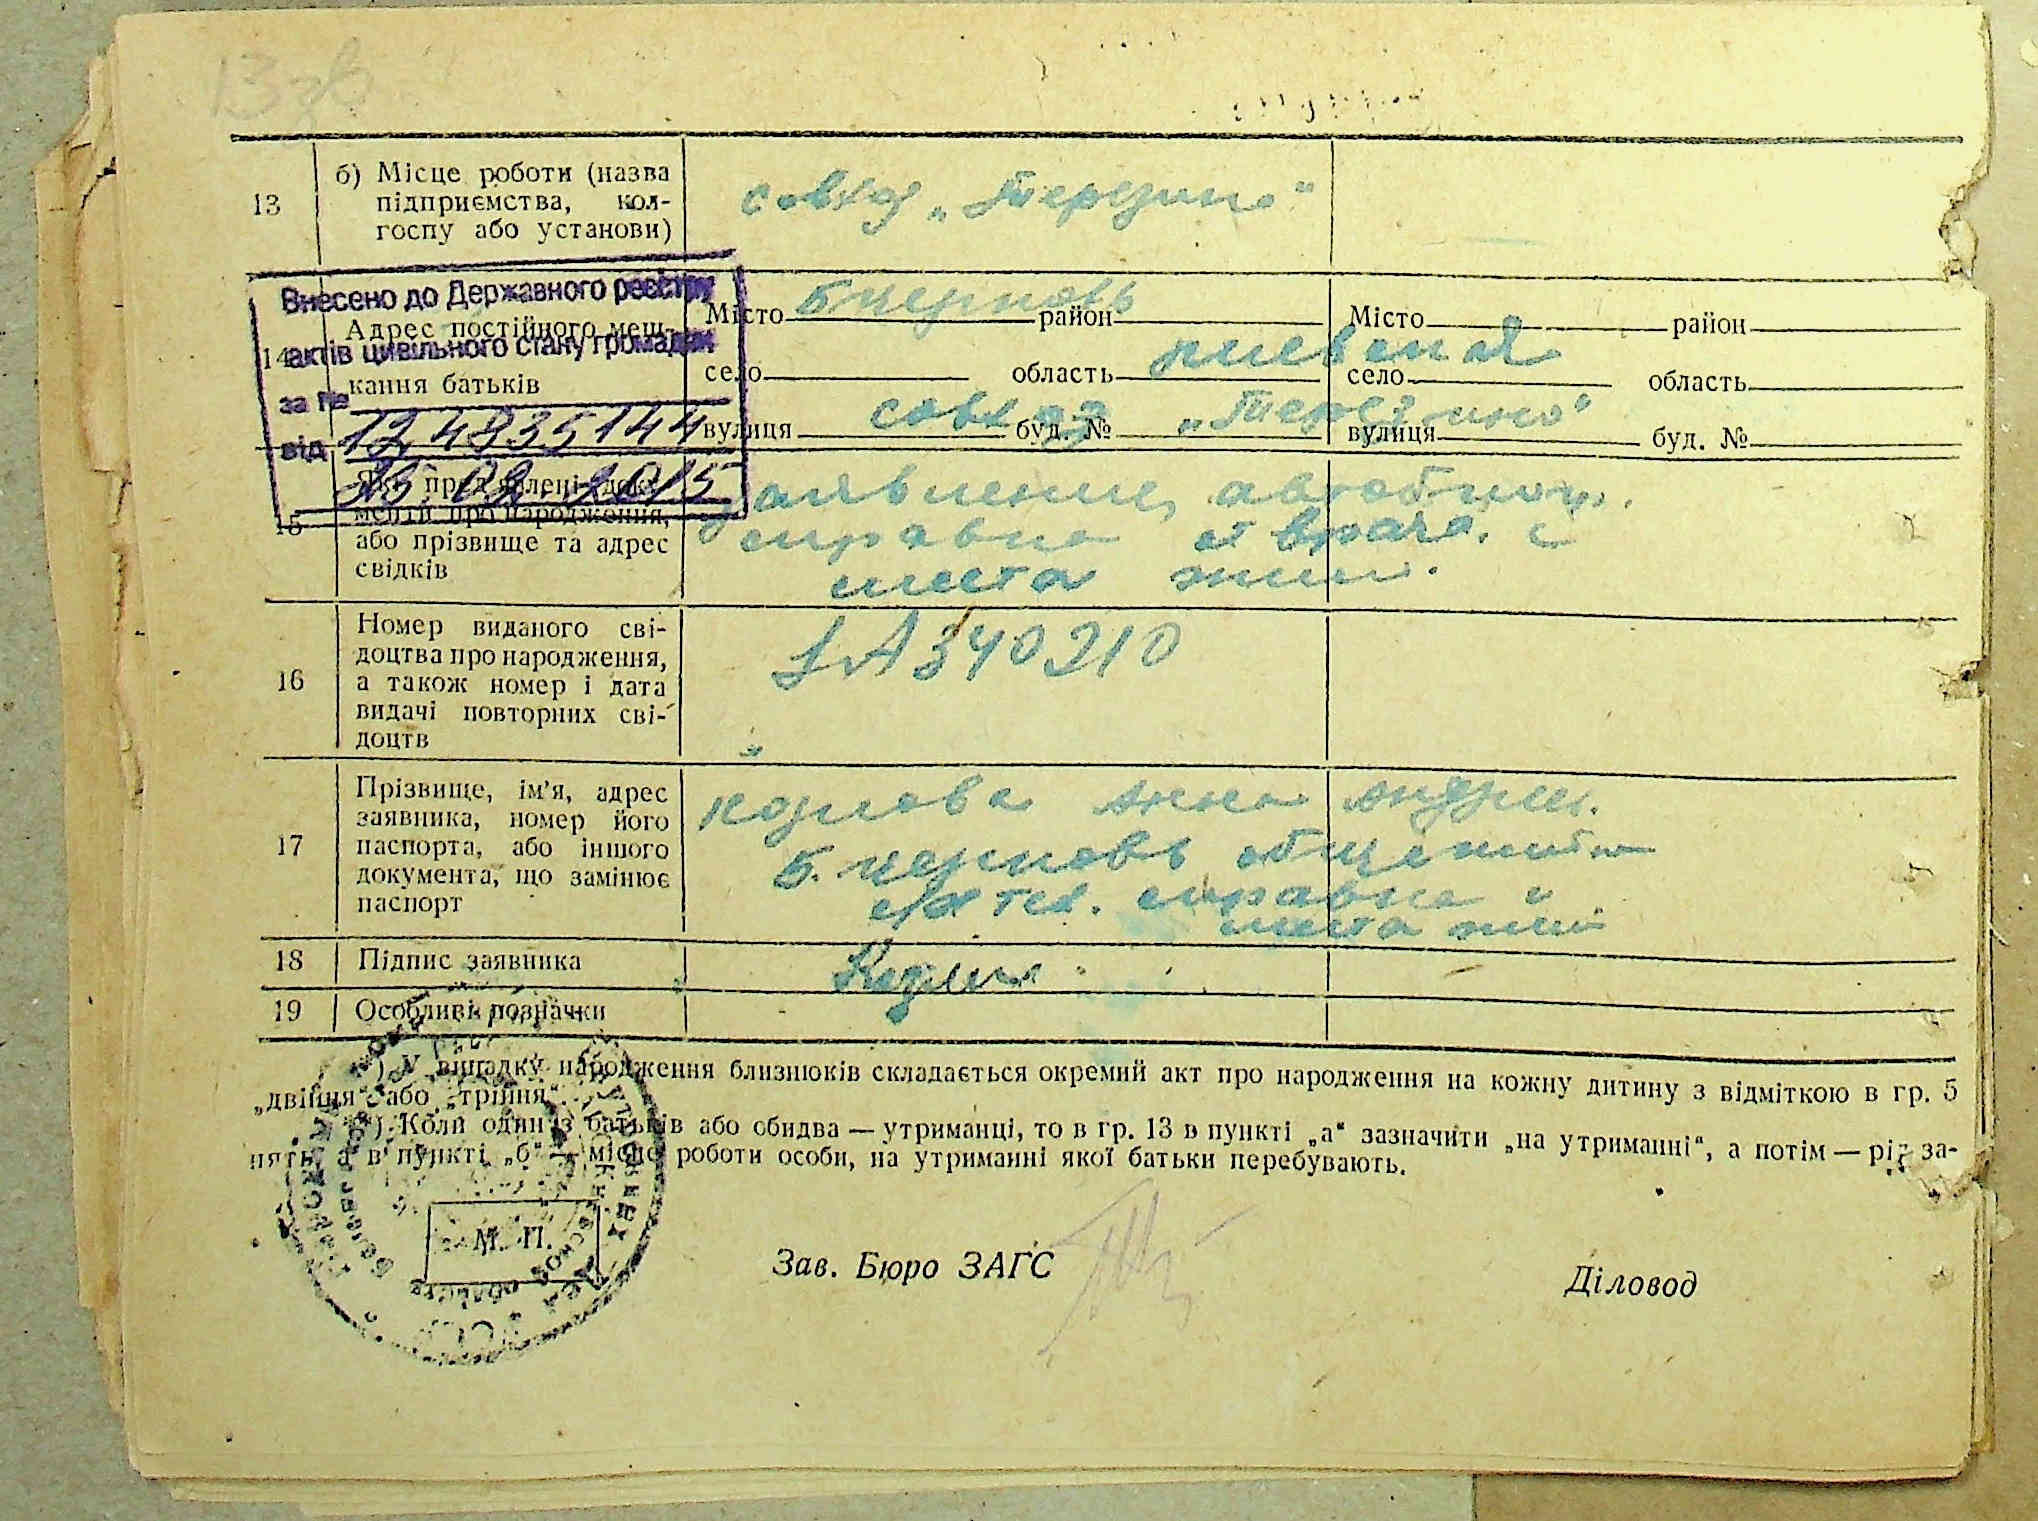 13 зв
13
б) Місце роботи (назва
підприємства, кол-
госпу або установи)
совхоз „Терезино“
Внесено до Державного реєстру
актів цивільного стану громадян
за №
124835144
від
14
Адрес постійного меш-
кання батьків
Місто Б церковь район
село область киевская
вулиця совхоз буд. № „Терезино“
Місто район
село область
вулиця буд. №
15
Які пред'явлені доку-
менти про народження,
або прізвище та адрес
свідків
заявление,
справка от врача. с
места жит.
16
Номер виданого сві-
доцтва про народження,
а також номер і дата
видачі повторних сві-
доцтв
ЯА 340210
17
Прізвище, ім'я, адрес
заявника, номер його
паспорта, або іншого
документа, що замінює
паспорт
Козлова Анна Андреев.
Б. церковь общежитие
с/х тех. справка с
места жит.
18
Підпис заявника
19
Особливі позначки
*) У випадку народження близнюків складається окремий акт про народження на кожну дитину з відміткою в гр. 5
„двійня“ або „трійня“.
**) Коли один із батьків або обидва — утриманці, то в гр. 13 в пункті „а“ зазначити „на утриманні“, а потім — рід за-
нять, а в пункті „б“ — місце роботи особи, на утриманні якої батьки перебувають.
М. П.
Зав. Бюро ЗАГС
Діловод